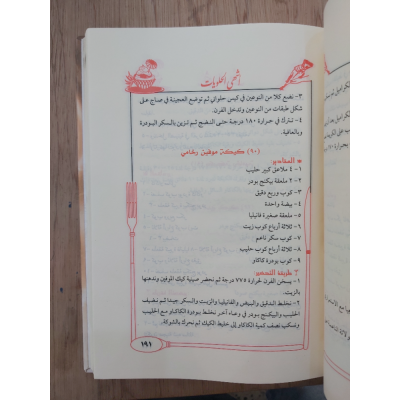 أشهى الحلويات
٣- نضع كلا من النوعين في كيس حلواني ثم توضع العجينة في صاج على
شكل طبقات من النوعين وتدخل الفرن.
٤- تترك في حرارة ١٨٠ درجة حتى النضج ثم تزين بالسكر البودرة
وبالعافية.
(٩٠) كيكة موفين رخامي
المقادير:
١- ٤ ملاعق كبير حليب
٢- ٢ ملعقة بيكنج بودر
٣- كوب وربع دقيق
٤- بيضة واحدة
٥- ملعقة صغيرة فانيليا
٦- ثلاثة أرباع كوب زيت
٧- كوب سكر ناعم
٨- ثلاثة أرباع كوب حليب
٩- كوب بودرة كاكاو
طريقة التحضير:
١- يسخن الفرن لحرارة ٧٧٥ درجة ثم نحضر صينية كيك الموفين وندهنها
بالزيت.
٢- نخلط الدقيق والبيض والفانيليا والزيت والسكر جيدا ثم نضيف
الحليب والبيكنج بودر في وعاء آخر نخلط بودرة الكاكاو مع الحليب
ونسكب نصف كمية الكاكاو إلى خليط الكيك ثم نحرك بالشوكة.
١٩١